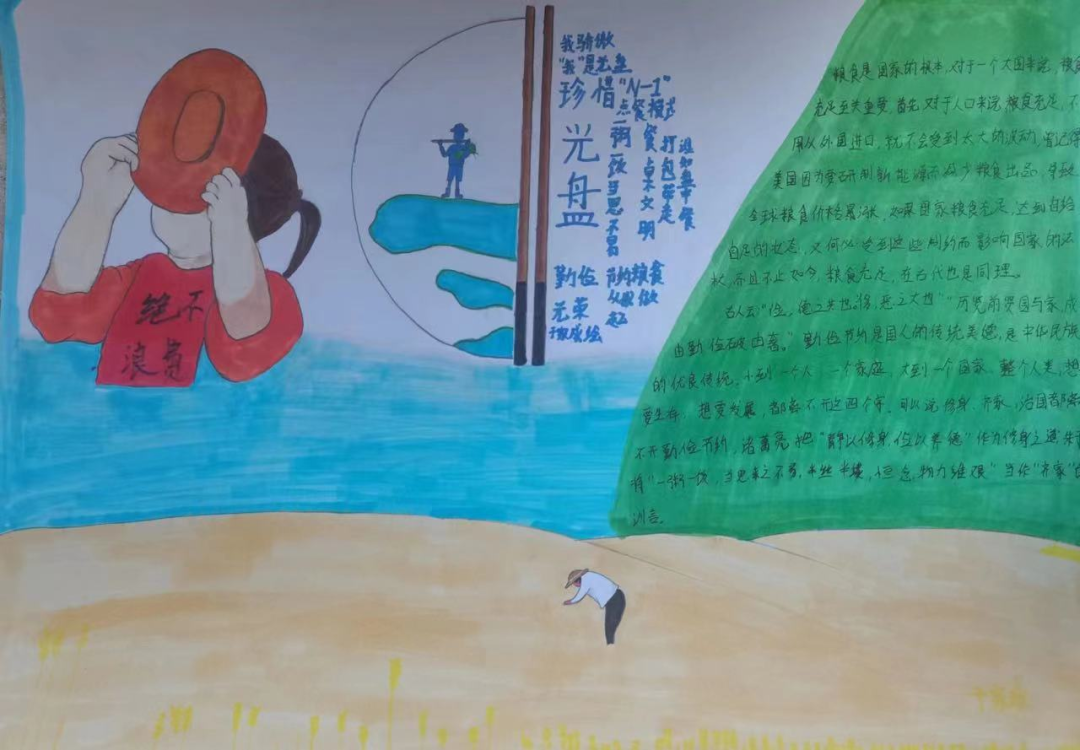 我骄傲
"我"是光盘
珍惜"N-1"
点餐模式
光盘
一粥一饭当思不易
餐桌不文明
打包带走
勤俭
光荣
节约粮食
从我做起
绝不
浪费
粮食是国家的根本,对于一个大国来说,粮食
充足至关重要。首先,对于人口来说,粮食充足,不
用从外国进口,就不会受到太大的波动,曾记得
美国因为要研制新能源而减少粮食出品,导致
全球粮食价格暴涨,如果国家粮食充足,达到自给
自足的状态,又何必受到这些制约而影响国家的
权,而且不止如今,粮食充足,在古代也是同理。
古人云"俭,德之共也;侈,恶之大也""历览前贤国与家,成
由勤俭破由奢。"勤俭节约是国人的传统美德,是中华民族
的优良传统。小到一个人、一个家庭,大到一个国家、整个人类,想
要生存,想要发展,都离不开这四个字。可以说修身、齐家、治国都
不开勤俭节约,诸葛亮把"静以修身,俭以养德"作为修身之道
将"一粥一饭,当思来之不易,半丝半缕,恒念物力维艰"当作"齐家"
训言。